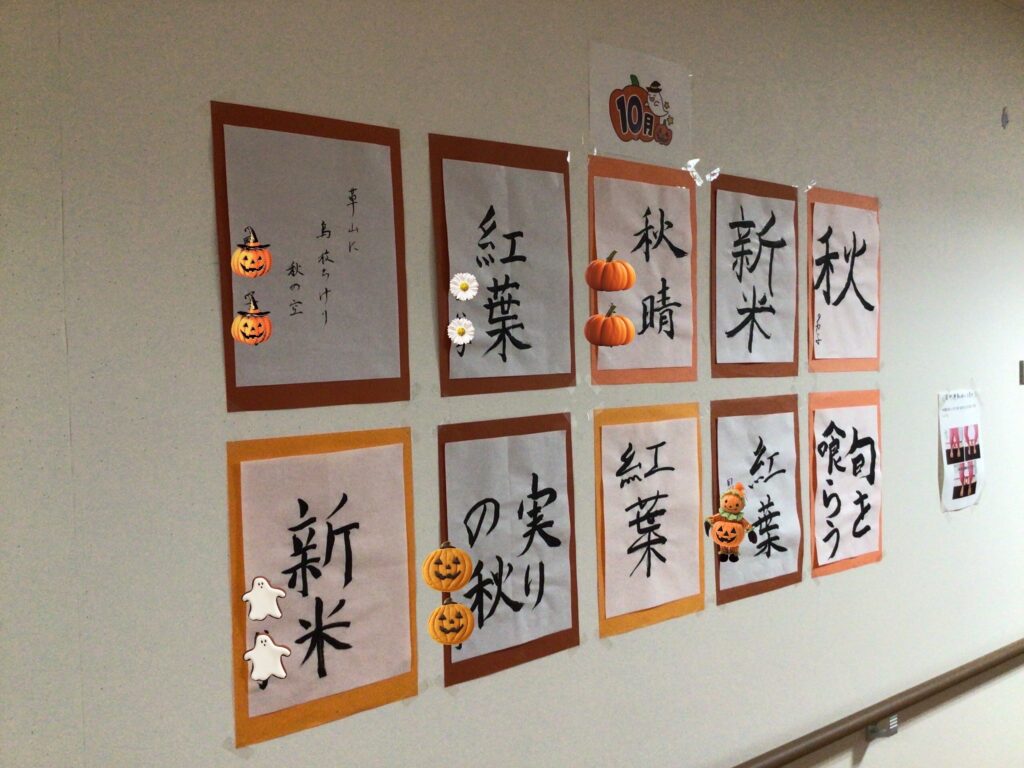 10月
草山に
鳥放ちけり
秋の空
紅葉
秋晴
新米
秋
新米
実り
の秋
紅葉
紅葉
旬を
喰らう